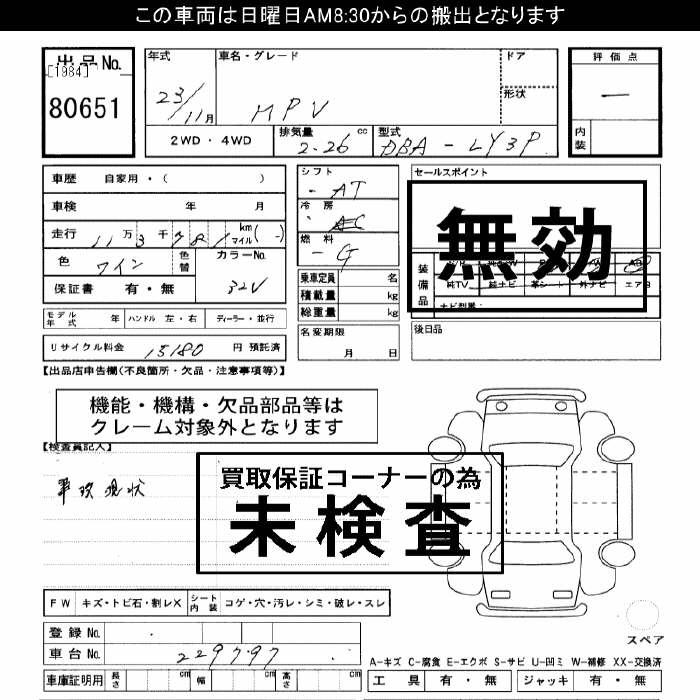 この車両は日曜日AM8:30からの搬出となります
出品No.
[1984]
80651
年式
23/11月
車名・グレード
MPV
ドア
形状
評価点
—
内装
2WD・4WD
排気量
2.26 cc
型式
DBA-LY3P
車歴 自家用・( )
車検 年 月
走行 11万3千781 km マイル( - )
色 ワイン
色替
カラーNo.
32V
保証書 有・無
シフト
- AT
冷房
AC
燃料
- G
乗車定員 名
積載量 kg
総重量 kg
セールスポイント
無効
装備品
純TV 純ナビ 革シート 外ナビ エアB
ナビ型番:
モデル年式 年 ハンドル 左・右 ディーラー・並行
名変期限
月 日
後日品
リサイクル料金 15180 円 預託済
【出品店申告欄(不良箇所・欠品・注意事項等)】
機能・機構・欠品部品等は
クレーム対象外となります
【検査員記入】
事故現状
買取保証コーナーの為
未検査
FW キズ・トビ石・割レX
シート内装 コゲ・穴・汚レ・シミ・破レ・スレ
登録No.
車台No. 229797
スペア
A-キズ C-腐食 E-エクボ S-サビ U-凹ミ W-補修 XX-交換済
車庫証明用 長さ cm 幅 cm 高さ cm
工具 有・無 ジャッキ 有・無